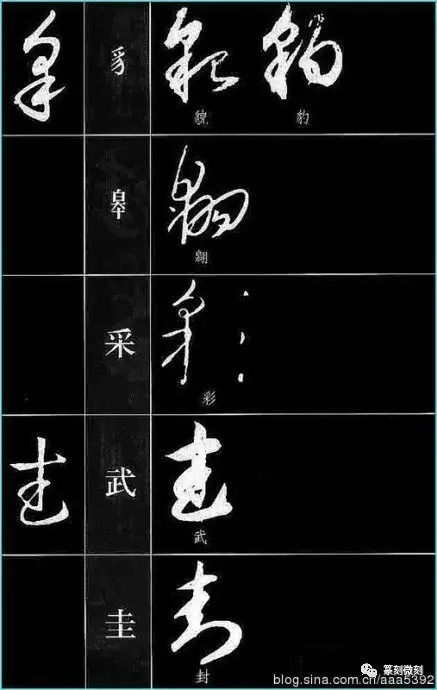 豸
貌 豹
翱
采
彩
武
武
圭
封
篆刻微刻
blog.sina.com.cn/aaa5392